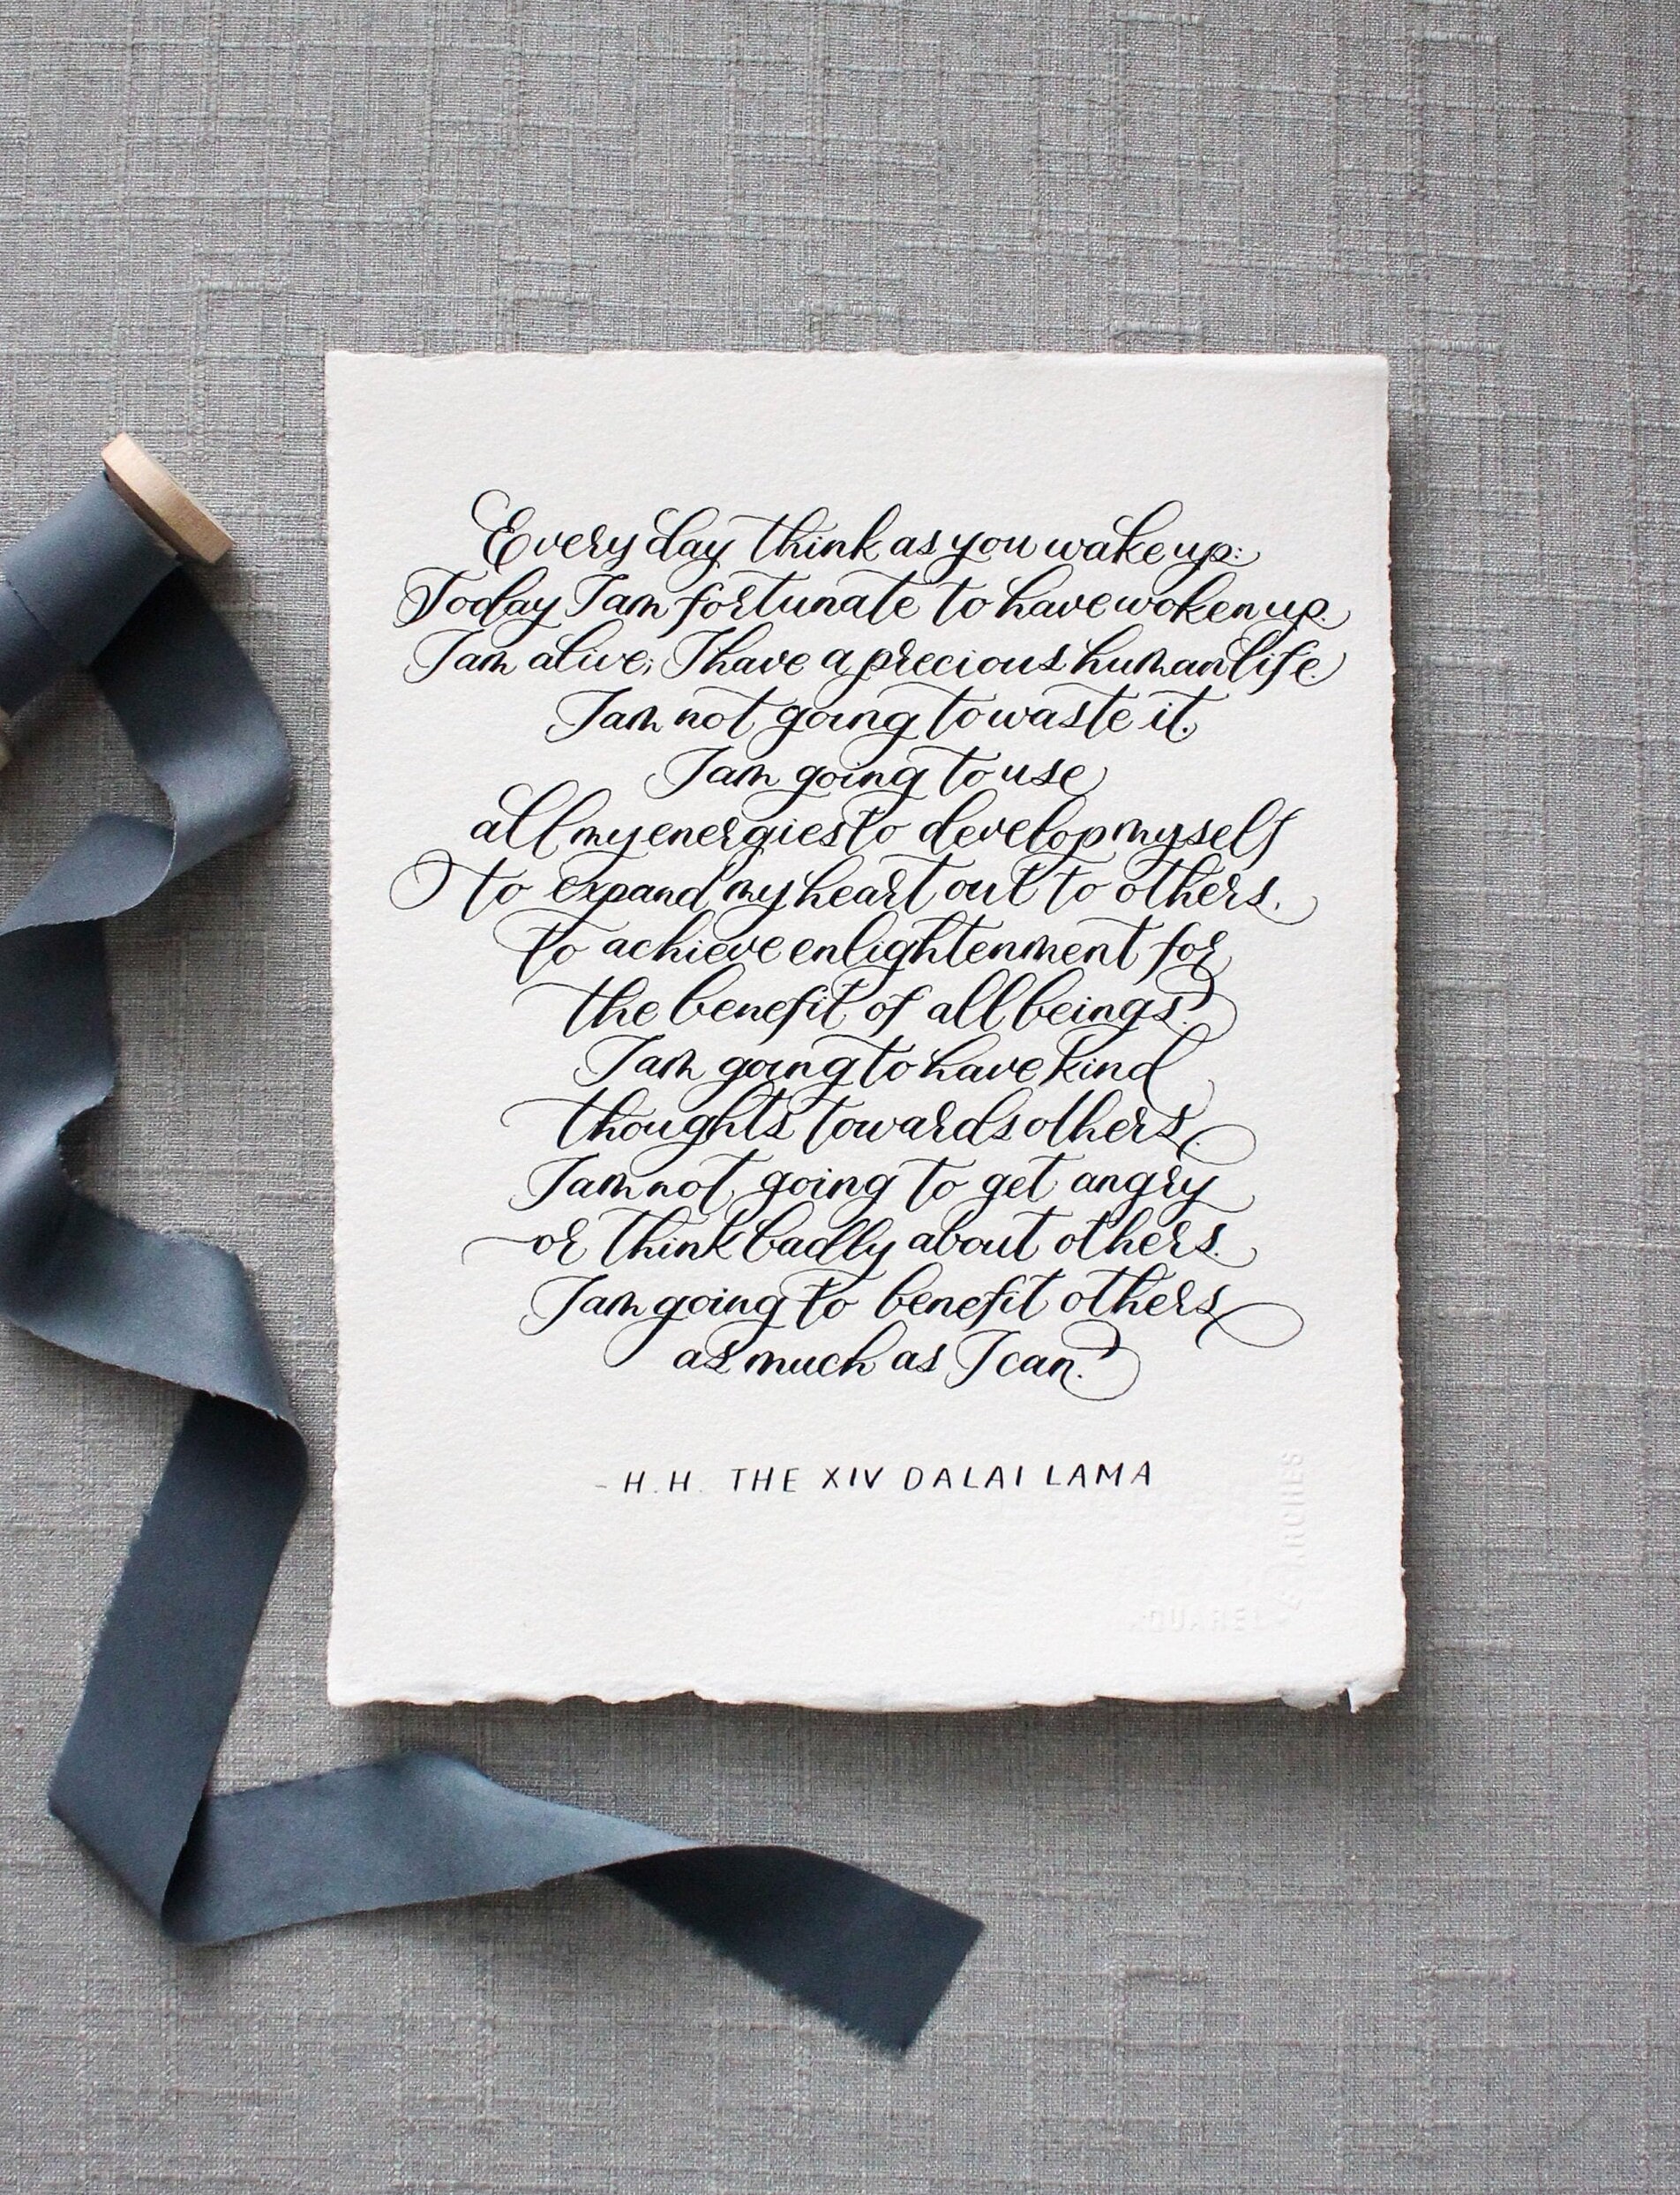 Every day think as you wake up:
Today I am fortunate to have woken up.
I am alive; I have a precious human life.
I am not going to waste it.
I am going to use
all my energies to develop myself
to expand my heart out to others.
to achieve enlightenment for
the benefit of all beings.
I am going to have kind
thoughts towards others.
I am not going to get angry
or think badly about others.
I am going to benefit others
as much as I can.
- H.H. THE XIV DALAI LAMA